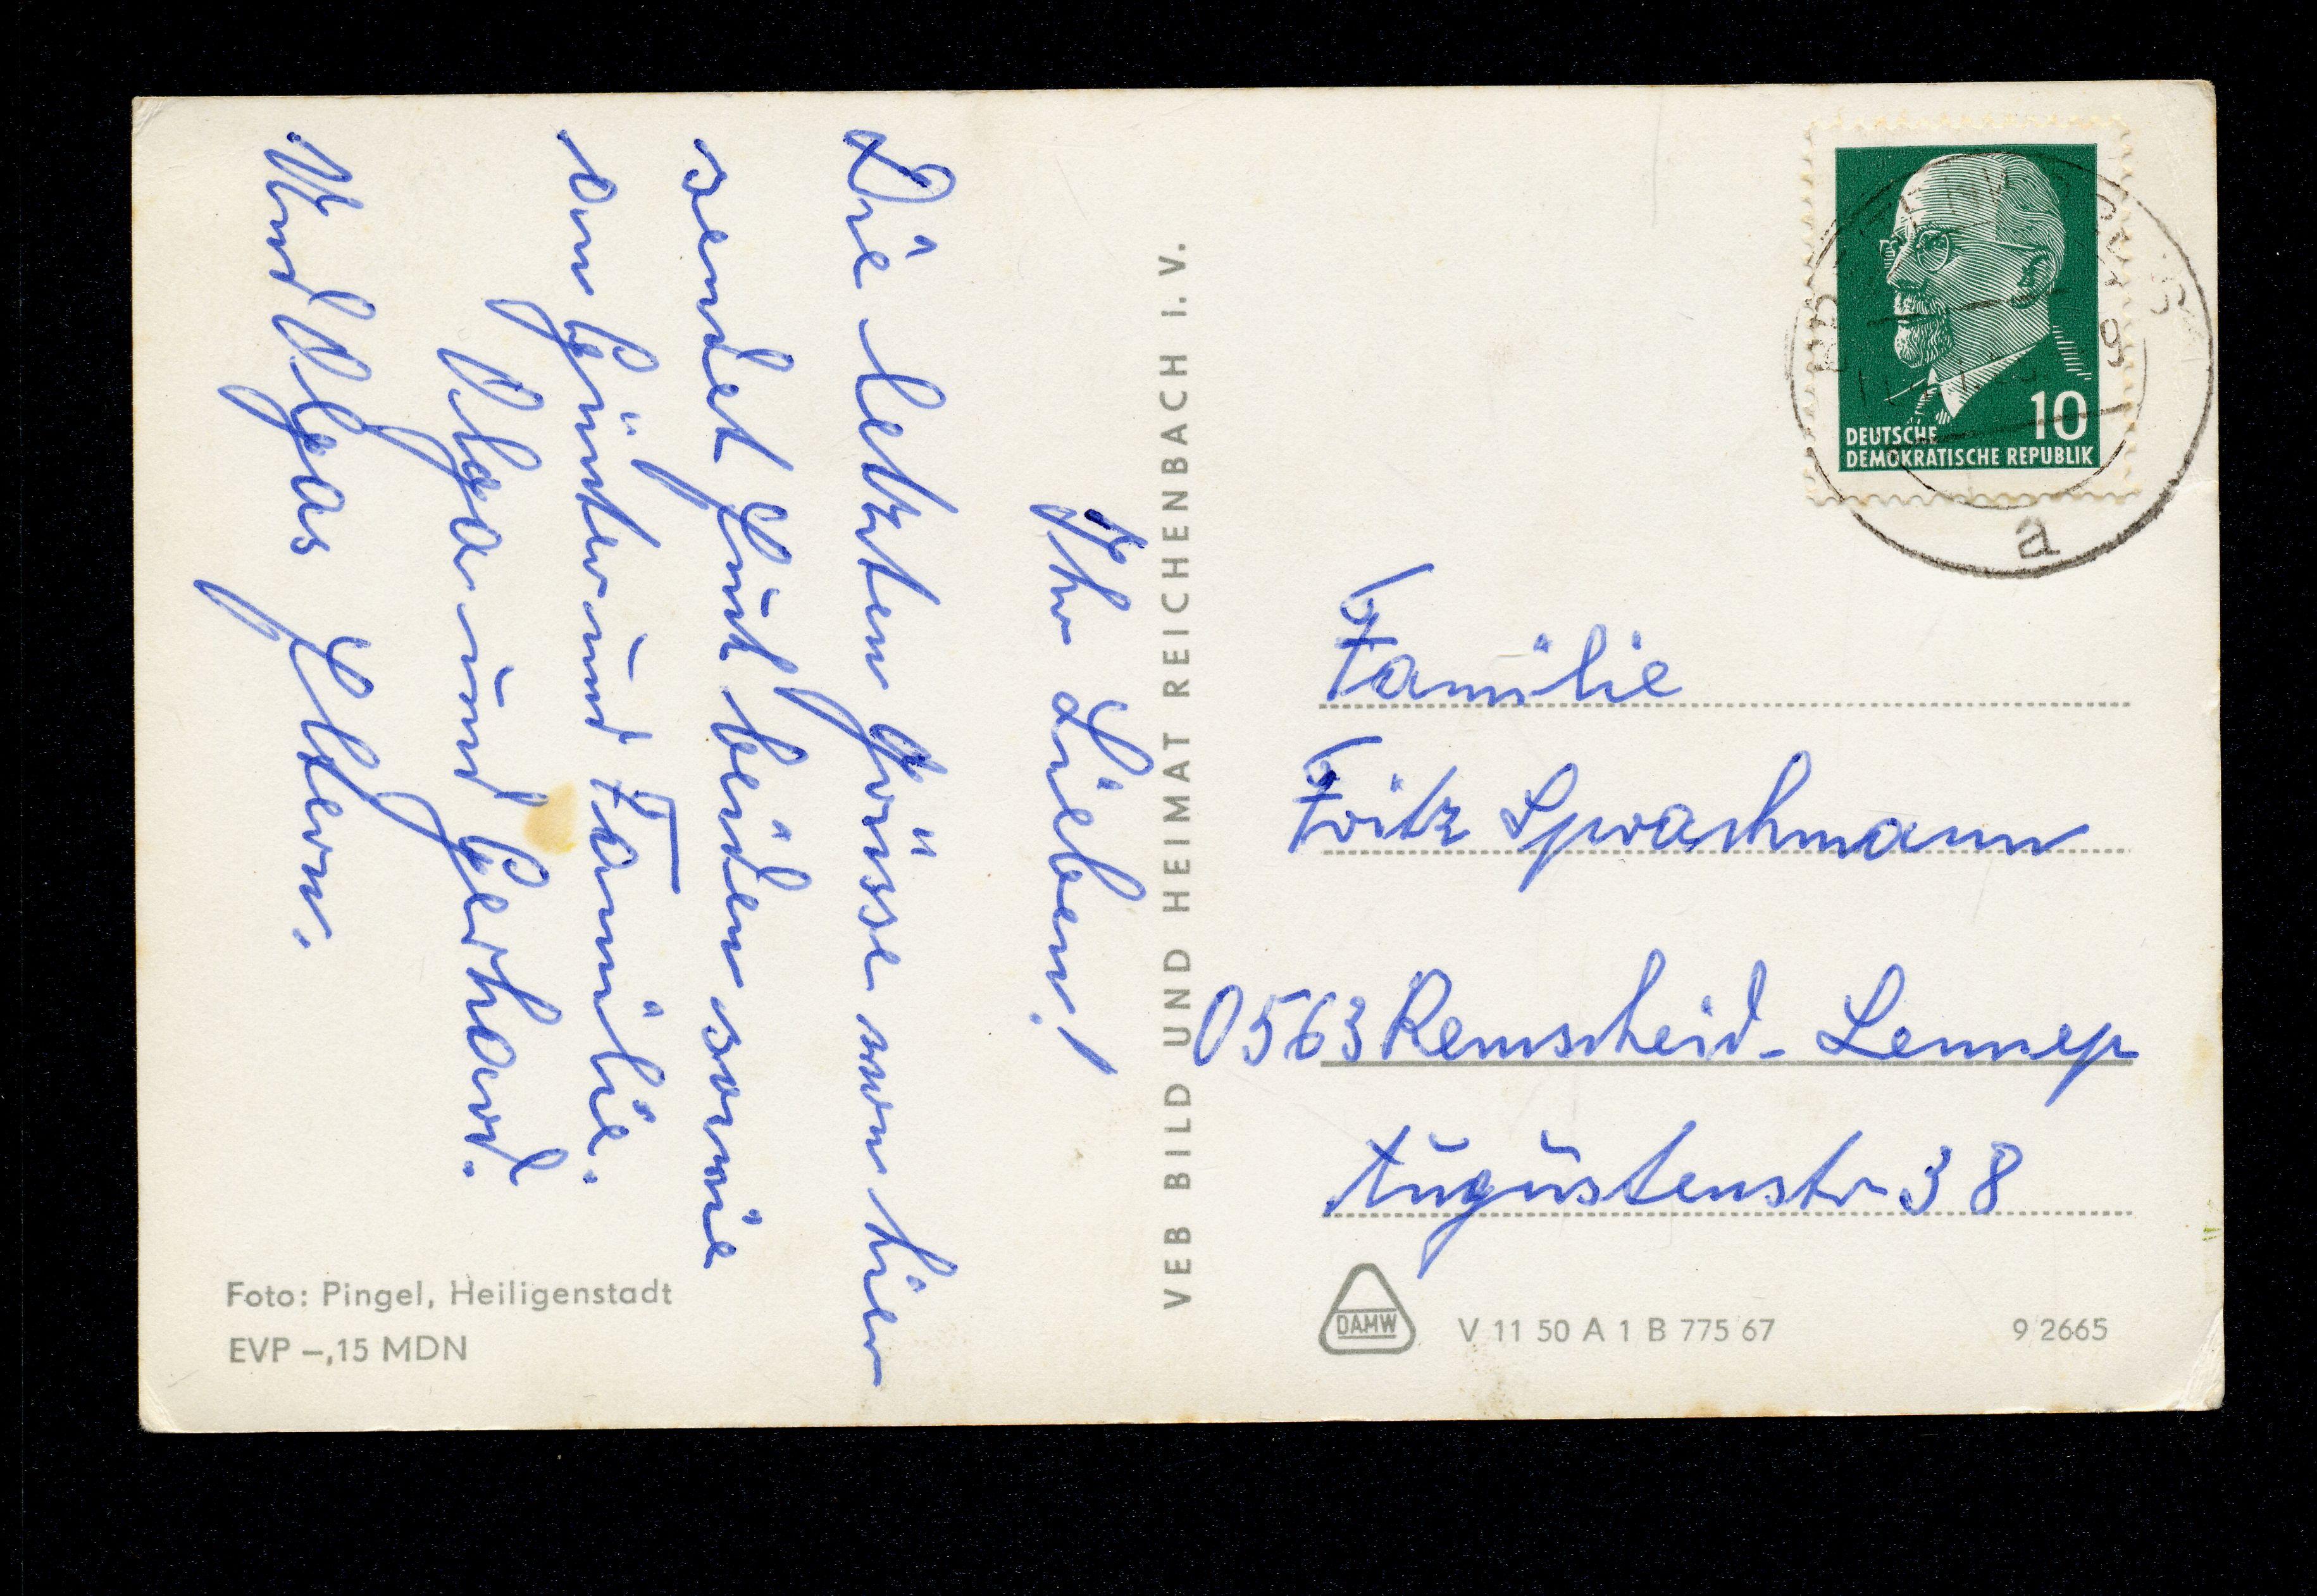 Ihr Lieben!
Die letzten Grüsse von hier
sendet Euch beiden sowie
an Günter und Familie.
Olga und Gerhard.
Und Olgas Eltern.
Foto: Pingel, Heiligenstadt
EVP –,15 MDN
VEB BILD UND HEIMAT REICHENBACH I. V.
10
DEUTSCHE
DEMOKRATISCHE REPUBLIK
a
Familie
Fritz Sprachmann
0563 Remscheid-Lennep
Augustenstr 38
DAMW
V 11 50 A 1 B 775 67
9 2665